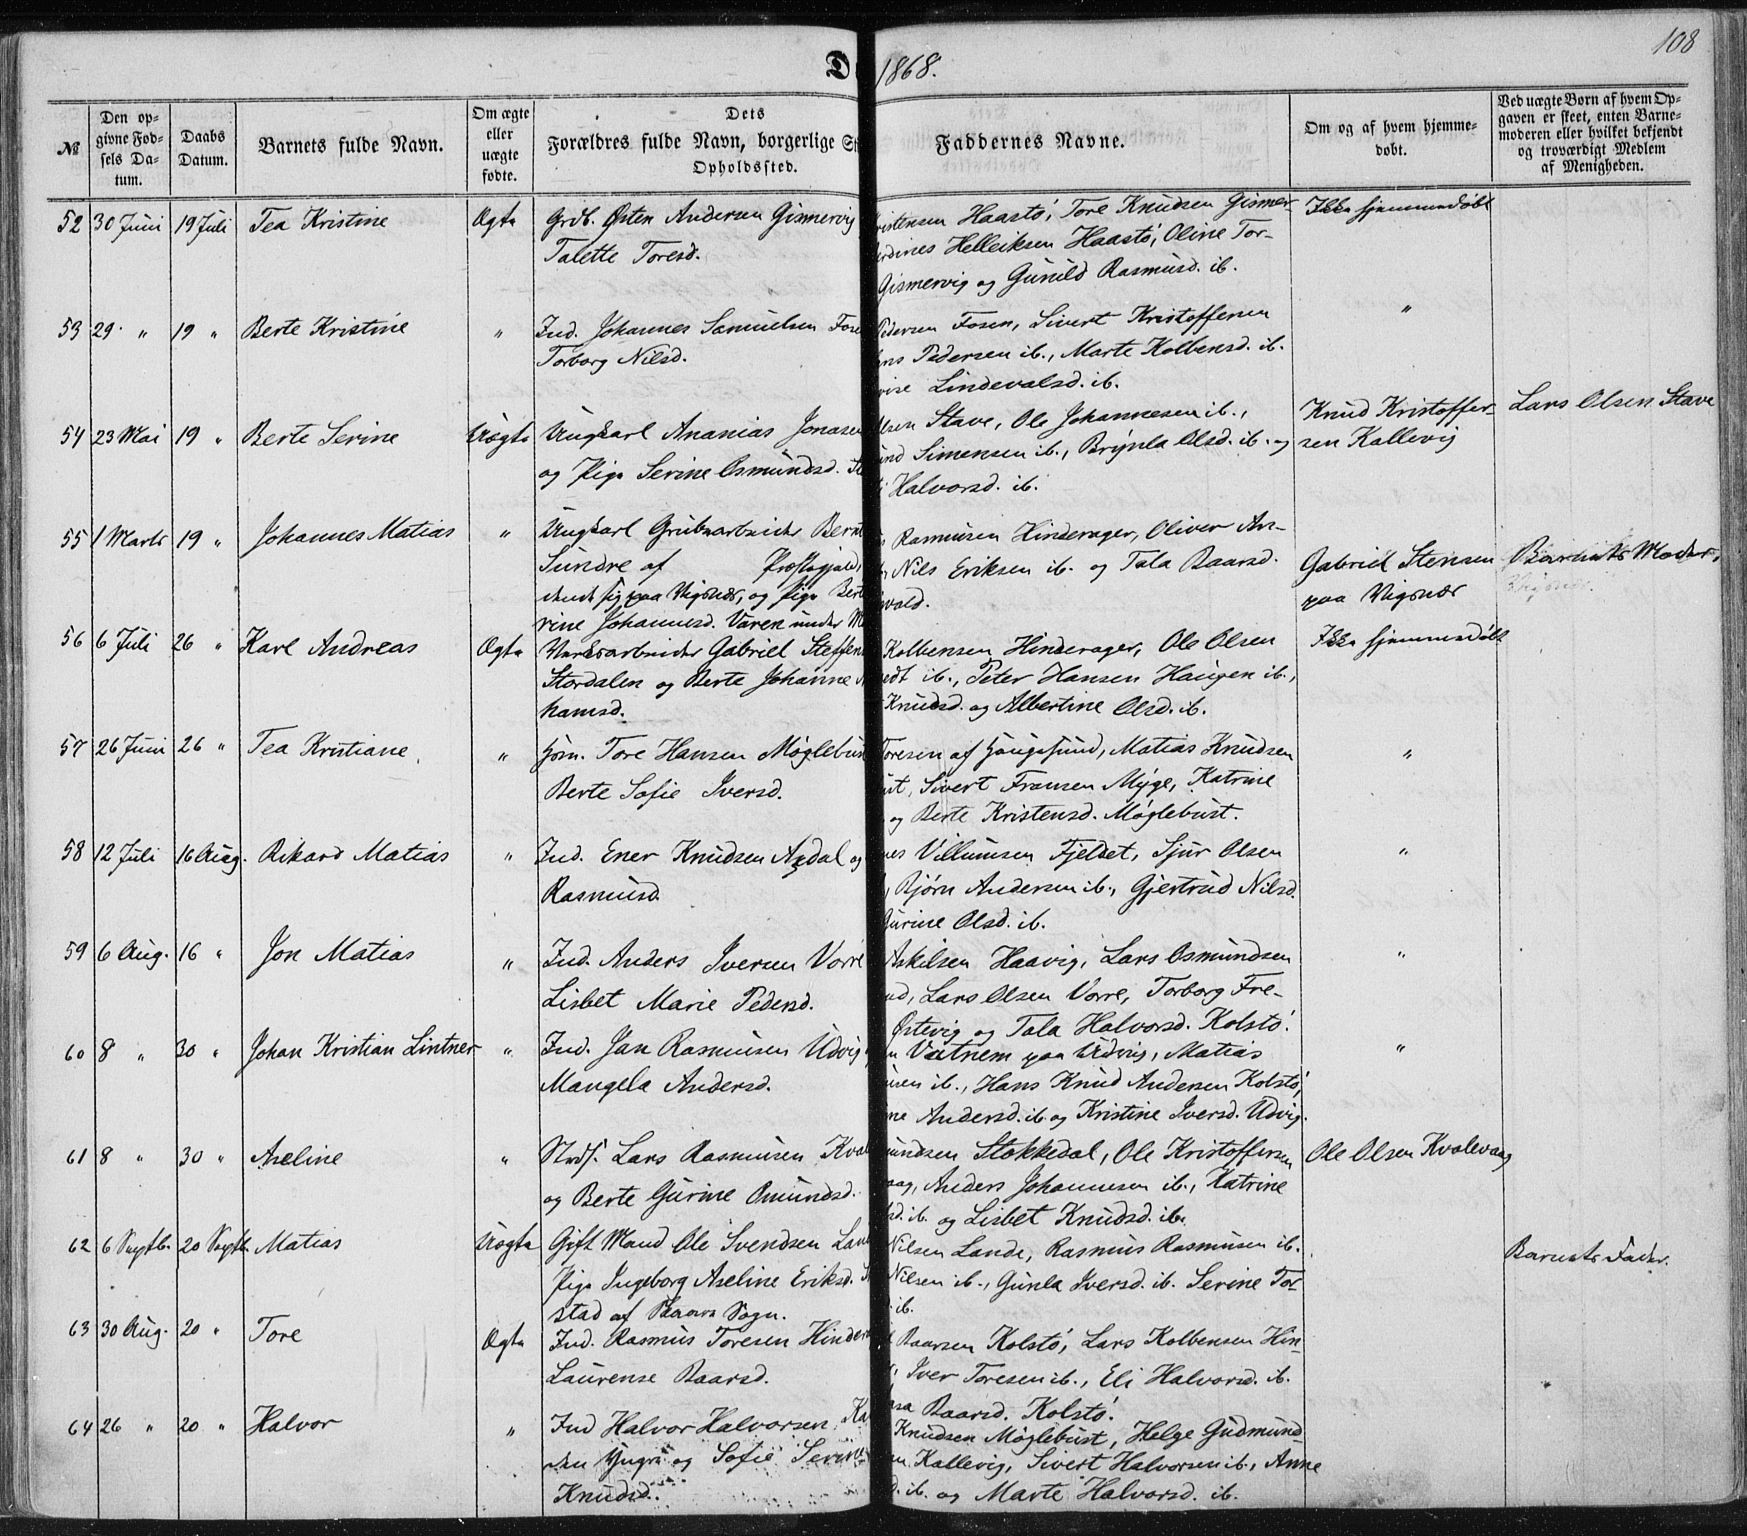 108
1868.
№
Den op-
givne Fød-
sels Da-
tum.
Daabs
Datum.
Barnets fulde Navn.
Om ægte
eller
uægte
fødte.
Dets
Forældres fulde Navn, borgerlige St
Opholdssted.
Faddernes Navne.
Om og af hvem hjemme-
døbt.
Ved uægte Børn af hvem Op-
gaven er skeet, enten Barne-
moderen eller hvilket bekjendt
og troværdigt Medlem
af Menigheden.
52 30 Juni 19 Juli Tea Kristine Ægte Grdb. Østen Andersen Gismervig
Talette Toresd.
ristensen Haastø, Tore Knudsen Gismer-
erdines Helleiksen Haastø, Oline Tor-
Gismervig og Gunild Rasmusd. ib.
Ikke hjemmedøbt
53 29 " 19 " Berte Kristine " Ind. Johannes Samuelsen Fose
Torborg Nilsd.
Pedersen Fosen, Sivert Kristoffersen
ens Pedersen ib., Marte Kolbensd. ib.
vise Lindevalsd. ib.
"
54 23 Mai 19 " Berte Serine Uægte Ungkarl Ananias Jonasen
og Pige Serine Osmundsd. St
lsen Stave, Ole Johannesen ib.,
und Simensen ib., Brynla Olsd. ib. og
i Halvorsd. ib.
Knud Kristoffer-
sen Kallevig
Lars Olsen Stave
55 1 Marts 19 " Johannes Matias " Ungkarl Grubearbeider Bernt
Sundre af Præstegjæld,
dende sig paa Vigsnæs, og Pige Bert
rine Johannesd. Varen under M
Rasmusen Hinderager, Oliver An-
Nils Eriksen ib. og Tala Baarsd.
vald.
Gabriel Stensen
paa Vigsnæs
Barnets Moder,
56 6 Juli 26 " Karl Andreas Ægte Verksarbeider Gabriel Steffen
Stordalen og Berte Johanne
hamsd.
Kolbensen Hinderager, Ole Olsen
edt ib., Peter Hansen Haugen ib.,
Knudsd. og Albertine Olsd. ib.
Ikke hjemmedøbt
57 26 Juni 26 " Tea Kristiane " Hsm. Tore Hansen Møglebust
Berte Sofie Iversd.
Toresen af Haugesund, Matias Knudsen
ust, Sivert Fransen Myge, Katrine
og Berte Kristensd. Møglebust.
"
58 12 Juli 16 Aug. Rikard Matias " Ind. Ener Knudsen Aadal og
Rasmusd.
nes Villumsen Fjeldet, Sjur Olsen
Bjørn Andersen ib., Gjertrud Nilsd.
Gurine Olsd. ib.
"
59 6 Aug. 16 " Jon Matias " Ind. Anders Iversen Vorre
Lisbet Marie Pedersd.
Askilsen Haavig, Lars Osmundsen
ud, Lars Olsen Vorre, Torborg Fre-
Østevig og Tala Halvorsd. Kolstø.
"
60 8 " 30 " Johan Kristian Lintner " Ind. Jan Rasmusen Udvig
Mangela Andersd.
n Vatnem paa Udvig, Matias
usen ib., Hans Knud Andersen Kolstø,
ne Andersd. ib. og Kristine Iversd. Udvig.
"
61 8 " 30 " Aseline " Strds. Lars Rasmusen Kval
og Berte Gurine Omundsd.
undsen Stokkedal, Ole Kristoffersen
aag, Anders Johannesen ib., Katrine
sd. ib. og Lisbet Knudsd. ib.
Ole Olsen Kvalevaag
62 6 Septb. 20 Septb. Matias Uægte Gift Mand Ole Svendsen Lan
Pige Ingeborg Aseline Eriksd.
stad af Skaare Sogn.
Nilsen Lande, Rasmus Rasmusen ib.
Nilsen ib., Gunla Iversd. ib. Serine Tor-
ib.
Barnets Fader.
63 30 Aug. 20 " Tore Ægte Ind. Rasmus Toresen Hindera
Laurense Baarsd.
Baarsen Kolstø, Lars Kolbensen Hin-
Iver Toresen ib., Eli Halvorsd. ib.
asa Baarsd. Kolstø.
64 26 " 20 " Halvor " Ind Halvor Halvorsen Kal
den Yngre og Sofie Serine
Knudsd.
Knudsen Møglebust, Helge Gudmund-
en Kallevig, Sivert Halvorsen ib., Anne
d. ib. og Marte Halvorsd. ib.